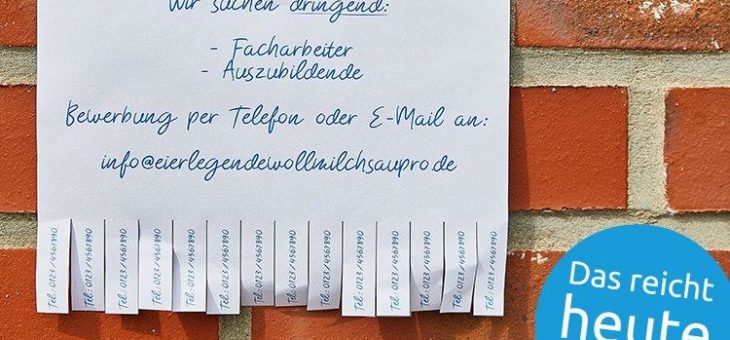 Wir suchen dringend:
- Facharbeiter
- Auszubildende
Bewerbung per Telefon oder E-Mail an:
info@eierlegendewollmilchsaupro.de
Tel.: 0123 /4567890
Tel.: 0123 /4567890
Tel.: 0123 /4567890
Tel.: 0123 /4567890
Tel.: 0123 /4567890
Tel.: 0123 /4567890
Tel.: 0123 /4567890
Tel.: 0123 /4567890
Tel.: 0123 /4567890
Tel.: 0123 /4567890
Tel.: 0123 /4567890
Tel.: 0123 /4567890
Tel.: 0123 /4567890
Tel.: 0123 /4567890
Das reicht
heute